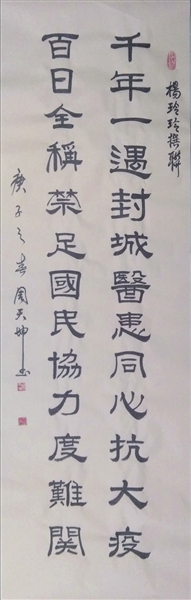 楊玲玲撰聯
千年一遇封城醫患同心抗大疫
百日全稱禁足國民協力度難関
庚子之春周天坤书